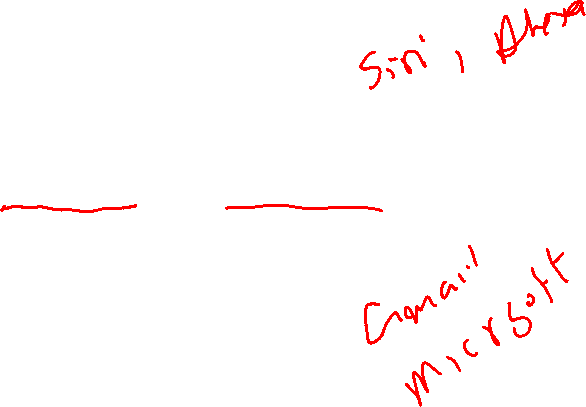 Siri, Alexa
Gmail
Microsoft